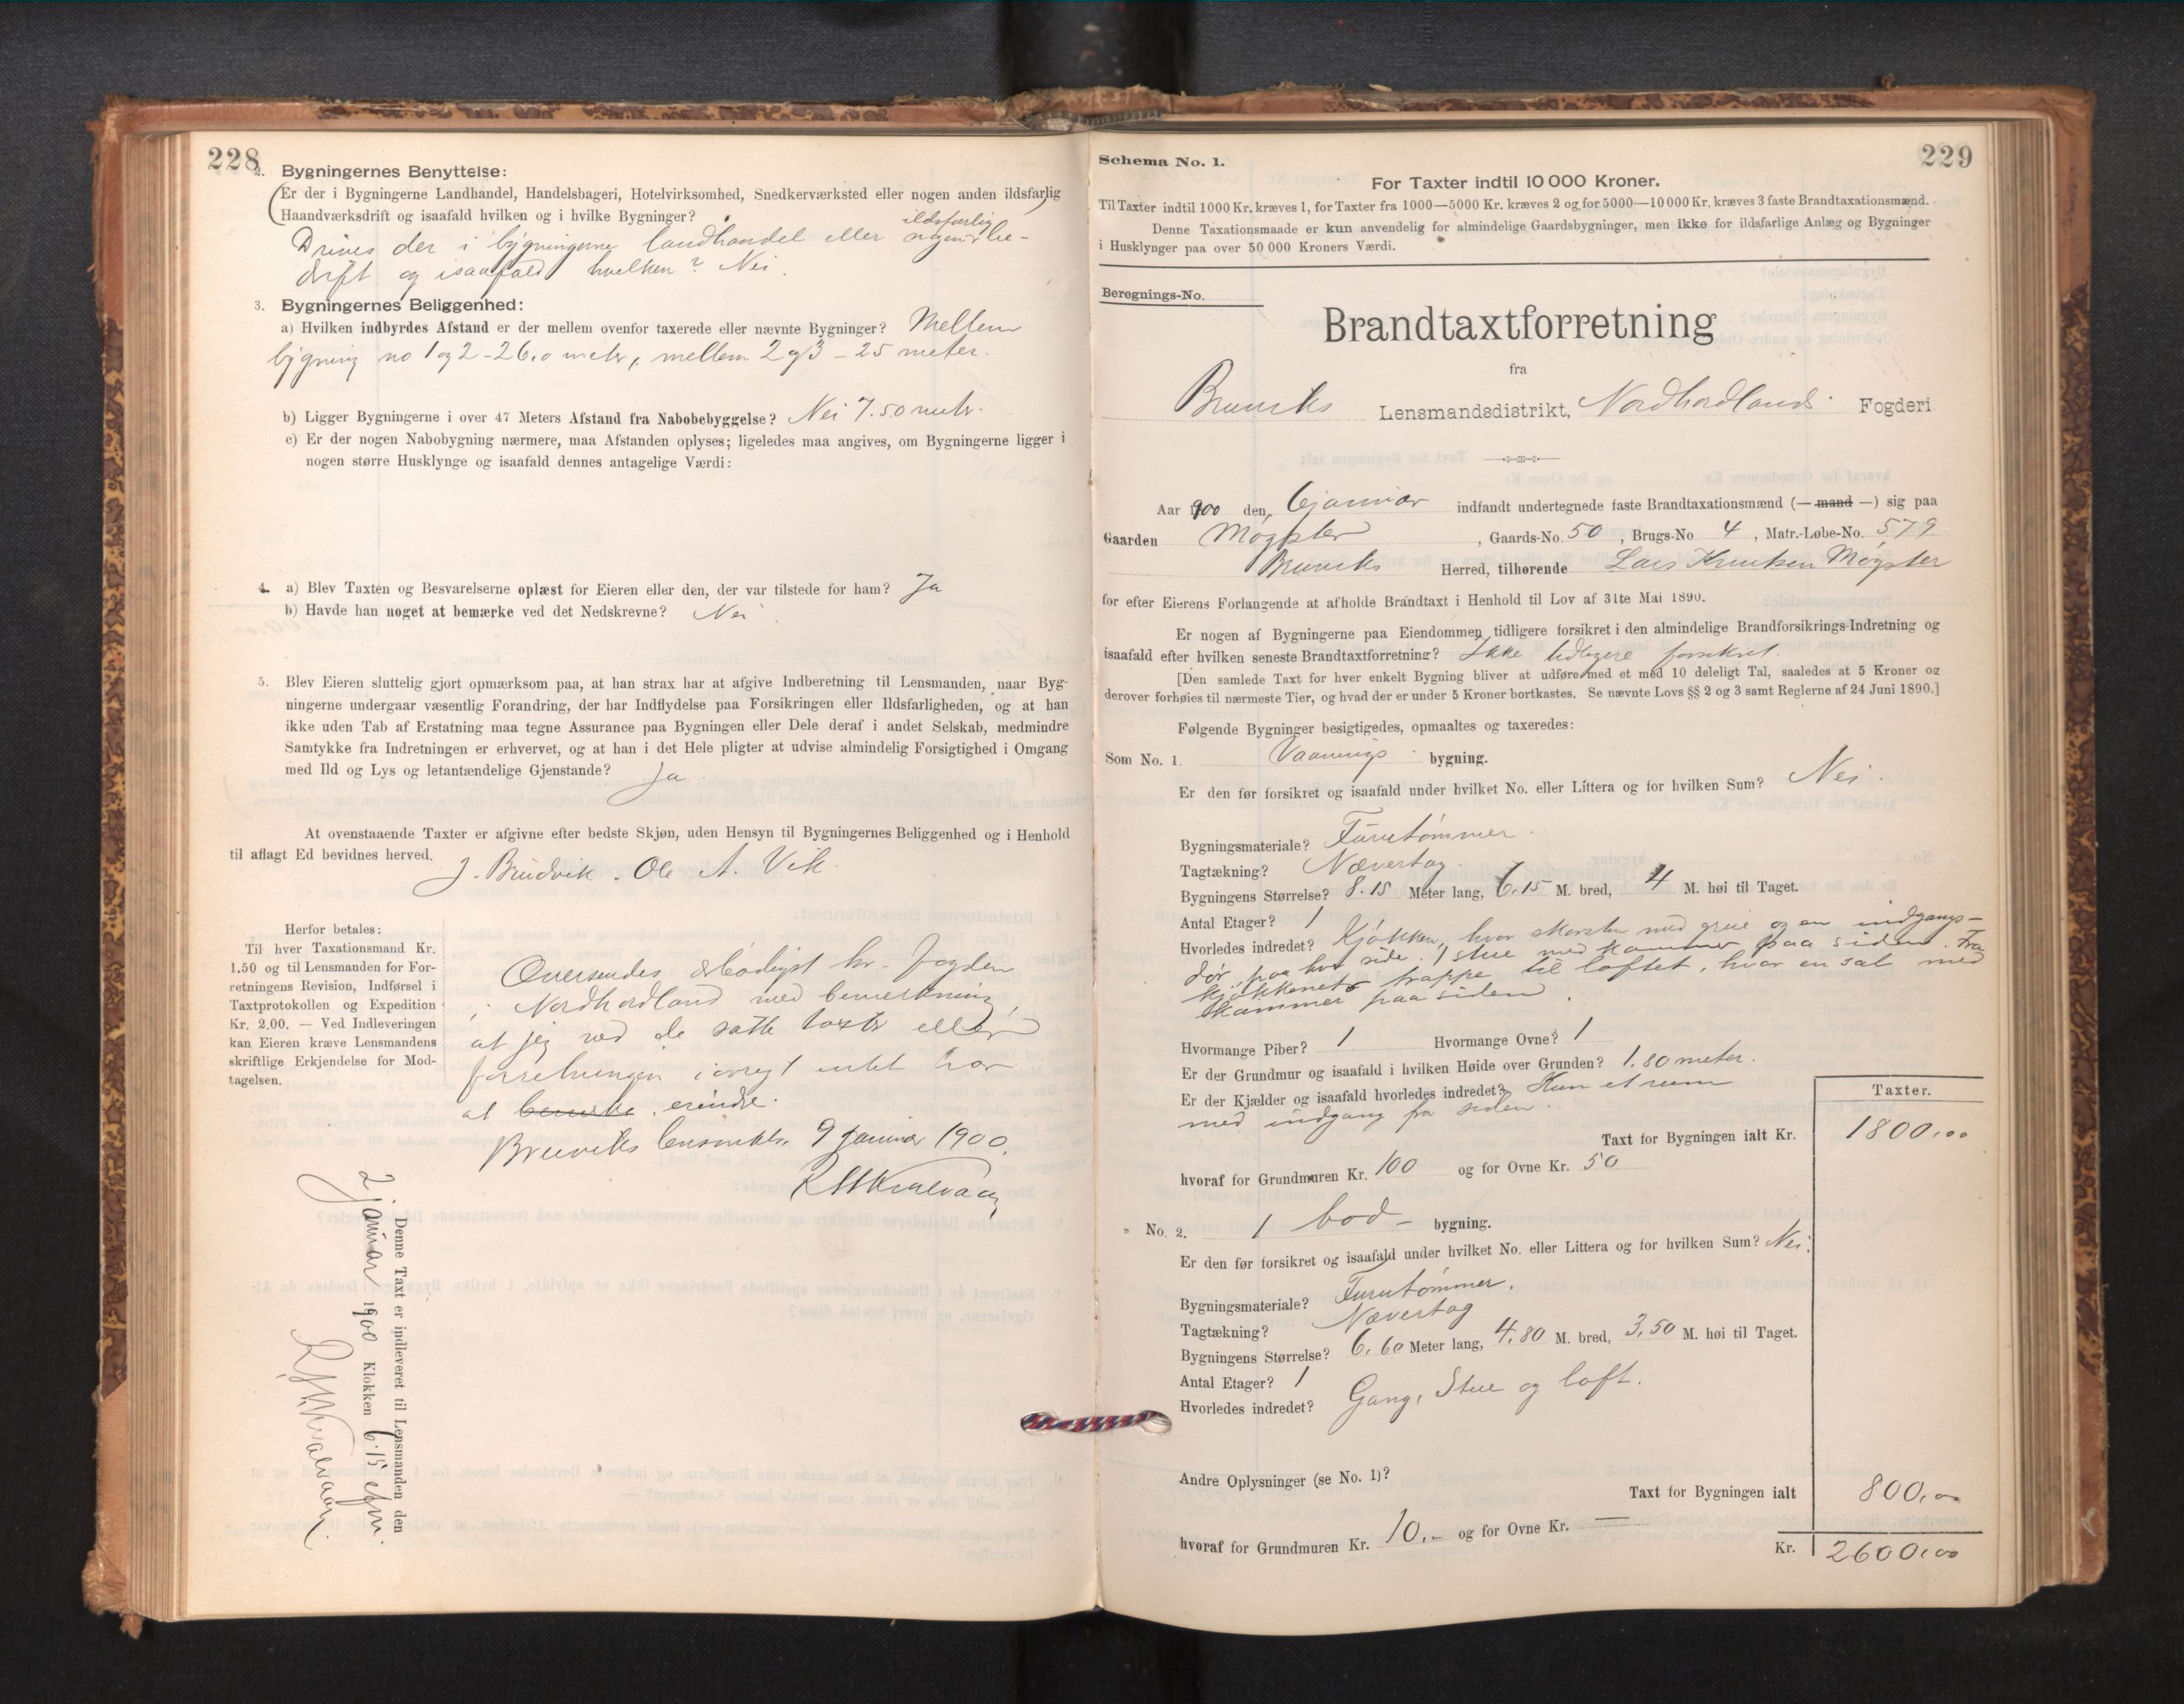 228
2. Bygningernes Benyttelse:
(Er der i Bygningerne Landhandel, Handelsbageri, Hotelvirksomhed, Snedkerværksted eller nogen anden ildsfarlig
Haandværksdrift og isaafald hvilken og i hvilke Bygninger?)
ildsfarlig
Drives der i bygningerne landhandel eller nogen be-
drift og isaafald hvilken? Nei.
3. Bygningernes Beliggenhed:
a) Hvilken indbyrdes Afstand er der mellem ovenfor taxerede eller nævnte Bygninger? Mellem
bygning no 1 og 2 - 26,0 metr, mellem 2 og 3 - 25 meter.
b) Ligger Bygningerne i over 47 Meters Afstand fra Nabobebyggelse? Nei 7.50 metr.
c) Er der nogen Nabobygning nærmere, maa Afstanden oplyses; ligeledes maa angives, om Bygningerne ligger i
nogen større Husklynge og isaafald dennes antagelige Værdi:
4. a) Blev Taxten og Besvarelserne oplæst for Eieren eller den, der var tilstede for ham? Ja
b) Havde han noget at bemærke ved det Nedskrevne? Nei
5. Blev Eieren sluttelig gjort opmærksom paa, at han strax har at afgive Indberetning til Lensmanden, naar Byg-
ningerne undergaar væsentlig Forandring, der har Indflydelse paa Forsikringen eller Ildsfarligheden, og at han
ikke uden Tab af Erstatning maa tegne Assurance paa Bygningen eller Dele deraf i andet Selskab, medmindre
Samtykke fra Indretningen er erhvervet, og at han i det Hele pligter at udvise almindelig Forsigtighed i Omgang
med Ild og Lys og letantændelige Gjenstande? Ja
At ovenstaaende Taxter er afgivne efter bedste Skjøn, uden Hensyn til Bygningernes Beliggenhed og i Henhold
til aflagt Ed bevidnes herved.
J. Brudvik. Ole A. Vik.
Herfor betales:
Til hver Taxationsmand Kr.
1.50 og til Lensmanden for For-
retningens Revision, Indførsel i
Taxtprotokollen og Expedition
Kr. 2.00. — Ved Indleveringen
kan Eieren kræve Lensmandens
skriftlige Erkjendelse for Mod-
tagelsen.
Oversendes ærbødigst hr. fogden
i Nordhordland med bemerkning,
at jeg ved de satte taxter eller
forretningen iøvrigt intet har
at bemerke erindre.
Bruviks lensmkt. 9 januar 1900.
Denne Taxt er indleveret til Lensmanden den
2 januar 1900 Klokken 6.15 efm.
229
Schema No. 1.
For Taxter indtil 10 000 Kroner.
Til Taxter indtil 1000 Kr. kræves 1, for Taxter fra 1000—5000 Kr. kræves 2 og for 5000—10 000 Kr. kræves 3 faste Brandtaxationsmænd.
Denne Taxationsmaade er kun anvendelig for almindelige Gaardsbygninger, men ikke for ildsfarlige Anlæg og Bygninger
i Husklynger paa over 50 000 Kroners Værdi.
Beregnings-No.
Brandtaxtforretning
fra
Bruviks Lensmandsdistrikt, Nordhordlands Fogderi
Aar 1900 den 6 januar indfandt undertegnede faste Brandtaxationsmænd (— mand —) sig paa
Gaarden Møgster, Gaards-No. 50, Brugs-No. 4, Matr.-Løbe-No. 579
Bruviks Herred, tilhørende Lars Knutsen Møgster
for efter Eierens Forlangende at afholde Brandtaxt i Henhold til Lov af 31te Mai 1890.
Er nogen af Bygningerne paa Eiendommen tidligere forsikret i den almindelige Brandforsikrings-Indretning og
isaafald efter hvilken seneste Brandtaxtforretning? Ikke tidligere forsikret.
[Den samlede Taxt for hver enkelt Bygning bliver at udføre med et med 10 deleligt Tal, saaledes at 5 Kroner og
derover forhøies til nærmeste Tier, og hvad der er under 5 Kroner bortkastes. Se nævnte Lovs §§ 2 og 3 samt Reglerne af 24 Juni 1890.]
Følgende Bygninger besigtigedes, opmaaltes og taxeredes:
Som No. 1. Vaanings bygning.
Er den før forsikret og isaafald under hvilket No. eller Littera og for hvilken Sum? Nei.
Bygningsmateriale? Furutømmer.
Tagtækning? Nævertag.
Bygningens Størrelse? 8.15 Meter lang, 6.15 M. bred, 4 M. høi til Taget.
Antal Etager? 1
Hvorledes indredet? Kjøkken, hvor skorsten med grue og en indgangs-
dør paa hver side. 1 stue med kammer paa siden. Fra
kjøkkenet trappe til loftet, hvor en sal med
kammer paa siden.
Hvormange Piber? 1 Hvormange Ovne? 1
Er der Grundmur og isaafald i hvilken Høide over Grunden? 1.80 meter.
Er der Kjælder og isaafald hvorledes indredet? Kun et rum
med indgang fra siden.
Taxter.
Taxt for Bygningen ialt Kr. 1800,00
hvoraf for Grundmuren Kr. 100 og for Ovne Kr. 50
„ No. 2. 1 bod- bygning.
Er den før forsikret og isaafald under hvilket No. eller Littera og for hvilken Sum? Nei.
Bygningsmateriale? Furutømmer.
Tagtækning? Nævertag
Bygningens Størrelse? 6.60 Meter lang, 4.80 M. bred, 3,50 M. høi til Taget.
Antal Etager? 1
Hvorledes indredet? Gang, Stue og loft.
Andre Oplysninger (se No. 1)?
Taxt for Bygningen ialt 800,00
hvoraf for Grundmuren Kr. 10,- og for Ovne Kr. —
Kr. 2600,00